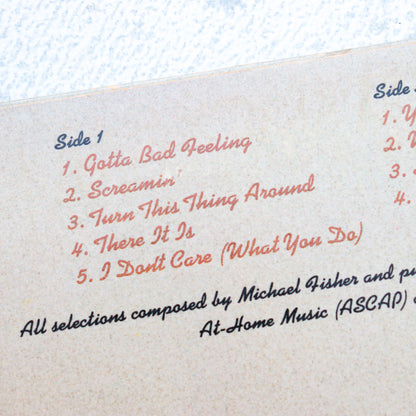 Side 1
1. Gotta Bad Feeling
2. Screamin'
3. Turn This Thing Around
4. There It Is
5. I Don't Care (What You Do)
Side
1. Y
2.
4.
All selections composed by Michael Fisher and pu
At-Home Music (ASCAP)